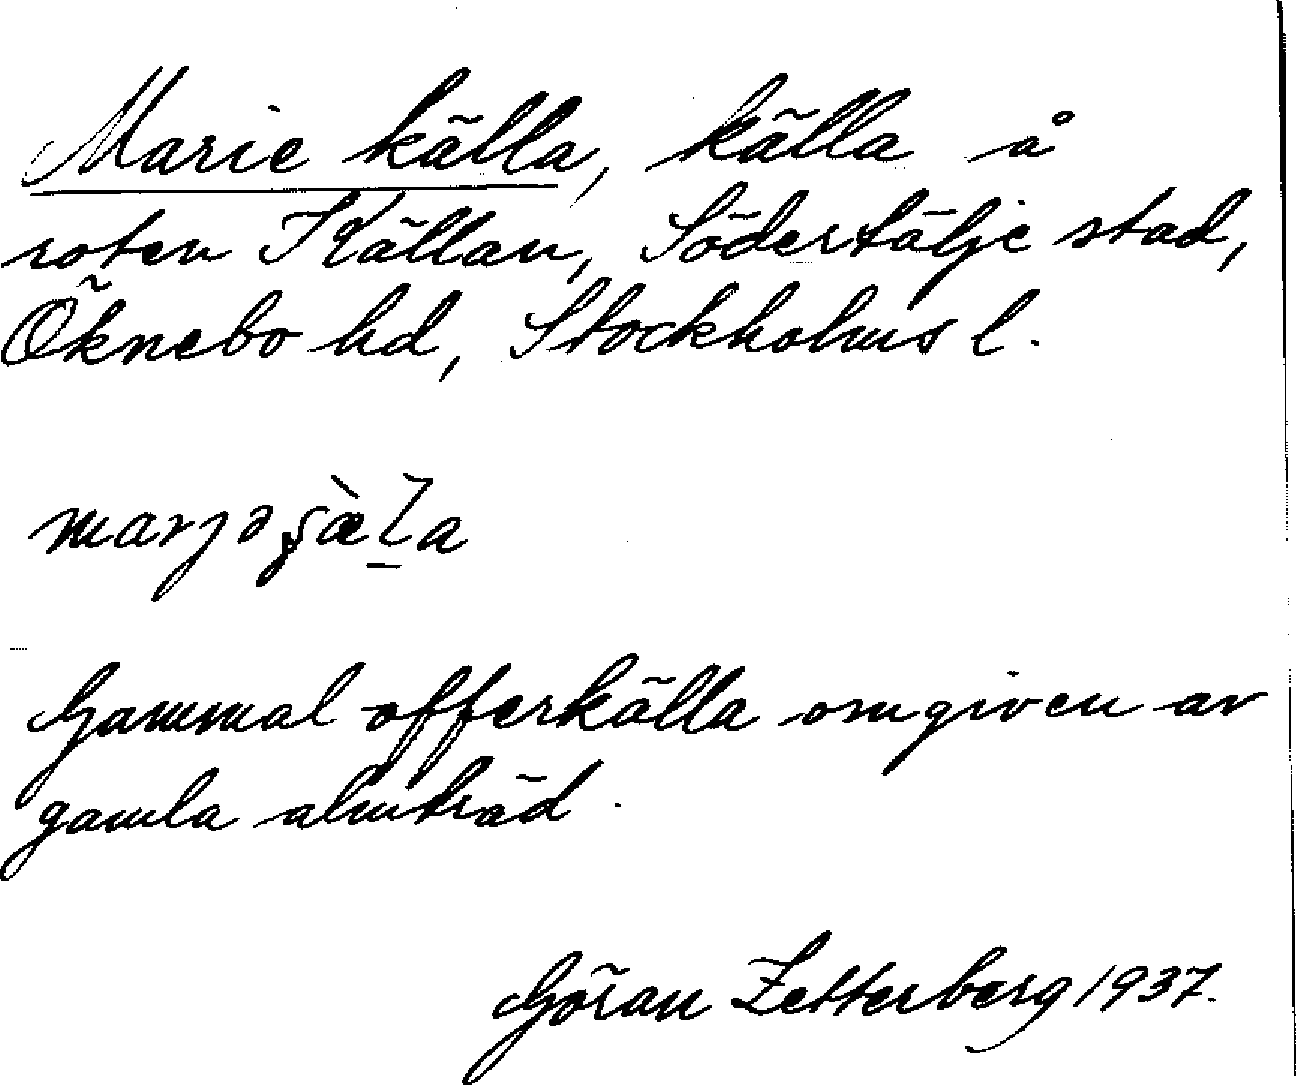 Marie källa, källa å
roten Källan, Södertälje stad,
Öknebo hd, Stockholms l.
marjəʂæ̀l̠a
Gammal offerkälla omgiven av
gamla almträd.
Göran Zetterberg 1937.